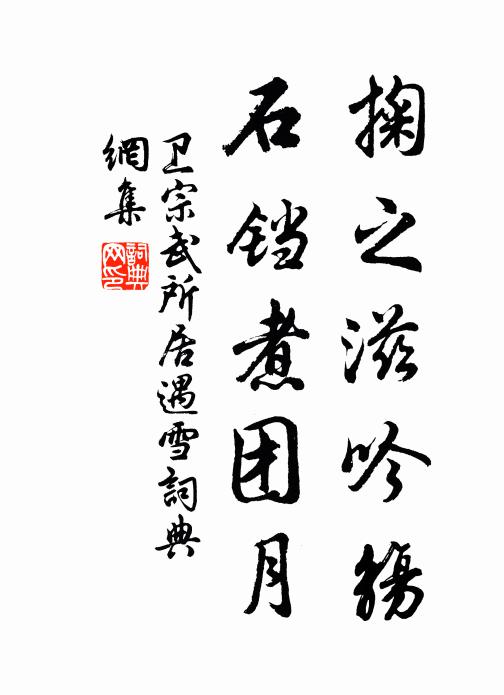 掬之滋吟觞
石铛煮团月
卫宗武所居遇雪詞典
網集
詞典网印